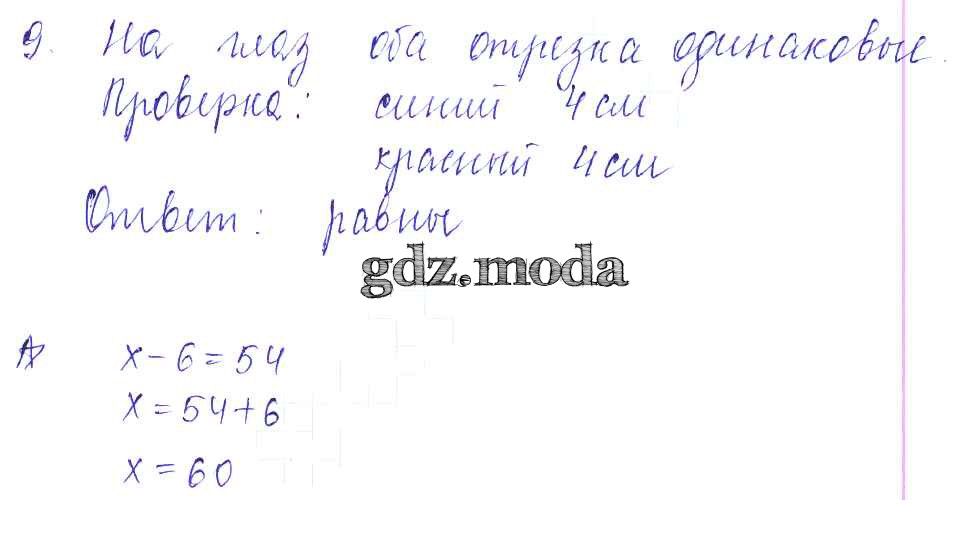 9. На глаз оба отрезка одинаковые.
Проверка: синий 4 см
красный 4 см
Ответ: равны
gdz.moda
x - 6 = 54
x = 54 + 6
x = 60